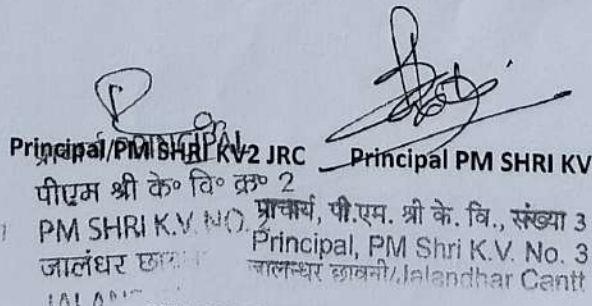 Principal/PM SHRI KV2 JRC
पीएम श्री के० वि० क्र० 2
PM SHRI K.V. NO.
जालंधर
Principal PM SHRI KV
प्राचार्य, पी.एम. श्री के. वि., संख्या 3
Principal, PM Shri K.V. No. 3
जालन्धर छावनी/Jalandhar Cantt